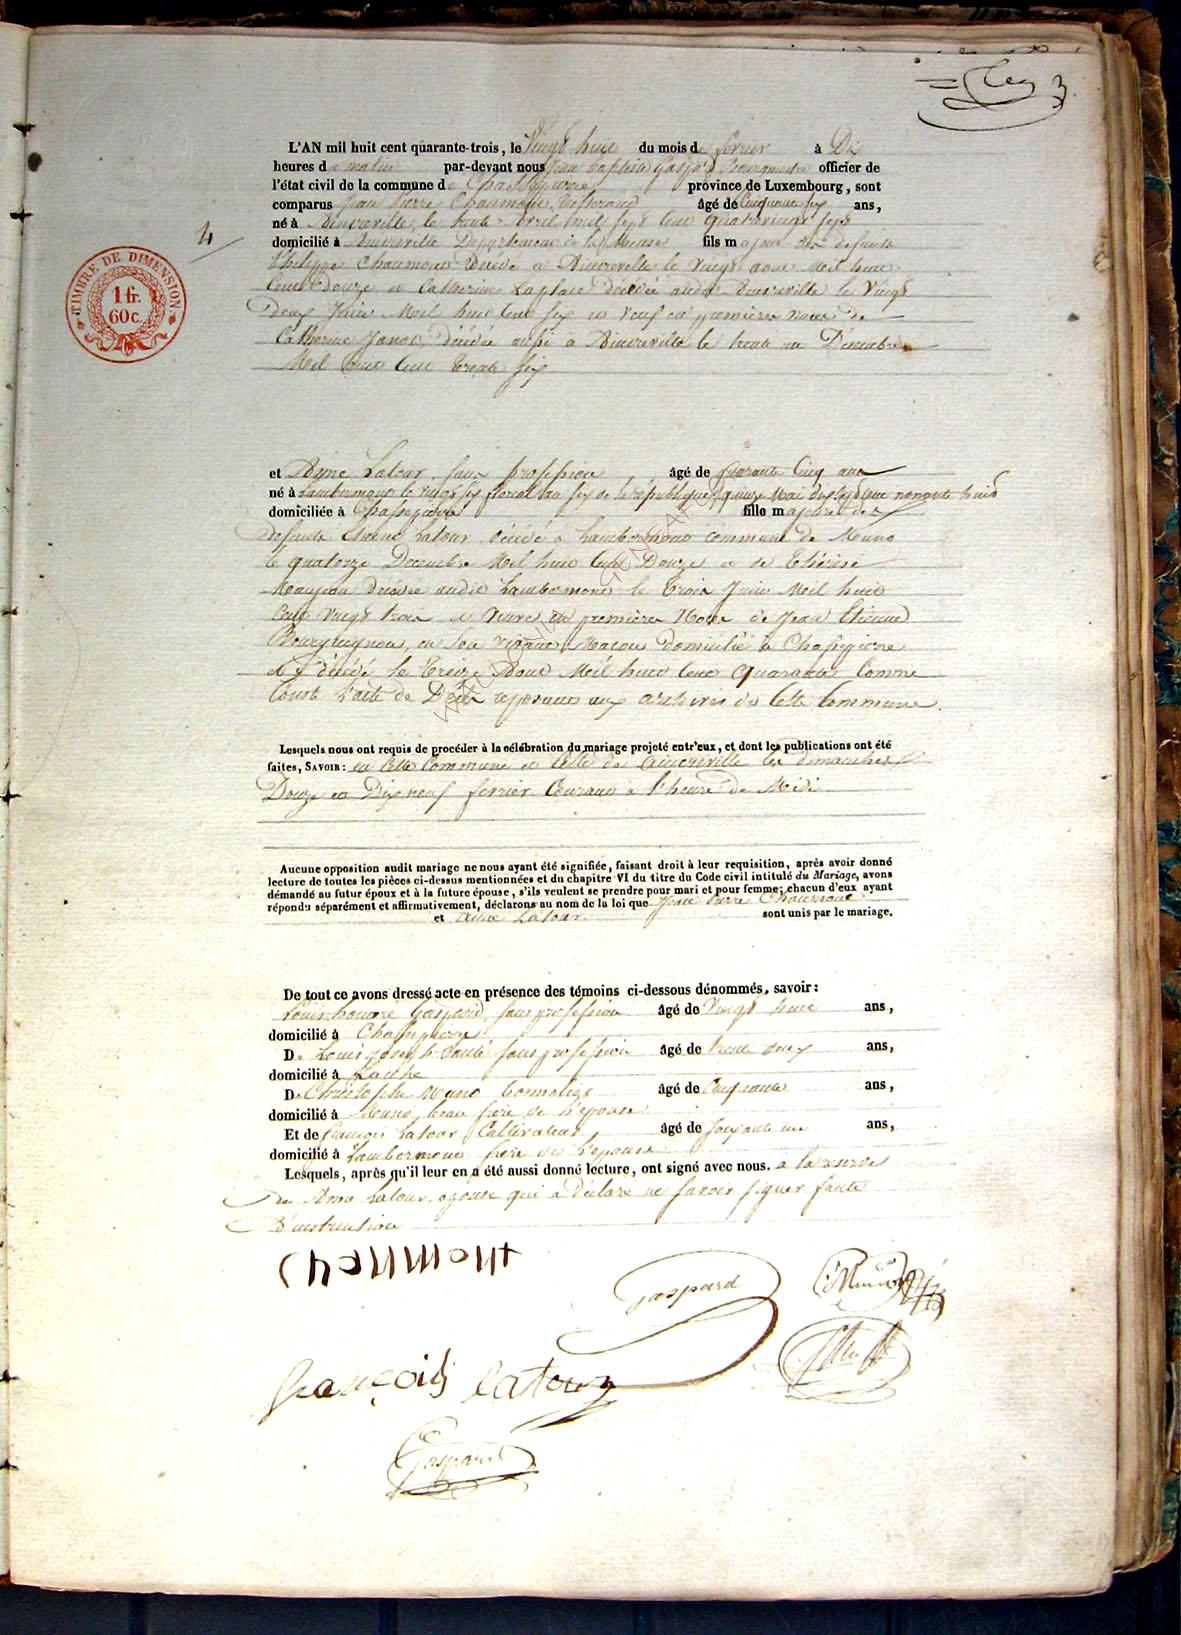 L'AN mil huit cent quarante-trois, le Vingt huit du mois de fevrier à Dix
heures du matin par-devant nous Jean Baptiste Gaspard Bourgmestre officier de
l'état civil de la commune de Chassepierre province de Luxembourg, sont
comparus Jean Pierre Chaumont, Tisserand âgé de Cinquante six ans,
né à Aincreville, le trente avril mil sept cent quatrevingt sept
domicilié à Aincreville Departement de la Meuse fils majeur des defunts
Philippe Chaumont décédé a Aincreville le Vingt aout Mil huit
Cent Douze et Catherine Laplace décédée audit Aincreville le Vingt
deux Juin Mil huit Cent six et veuf en premieres noces de
Catherine décédée aussi a Aincreville le trente un Decembre
Mil huit Cent trente six
4
TIMBRE DE DIMENSION
1 fr.
60 c.
et Anne Latour, sans profession âgé de quarante Cinq ans
né à Lambermont le vingt six floreal an six de la république, quinze Mai dix sept cent nonante huit
domiciliée à Chassepierre fille majeure des
defunts Latour, décédé a Lambermont commune de Muno
le quatorze Decembre Mil huit Cent Douze et de Thérèse
décédée audit Lambermont le Trois Juin Mil huit
Cent vingt trois et veuve en premieres Noces de Jean Etienne
Bourguignon, en son vivant Maçon domicilié à Chassepierre
et y décédé le Treize Aout Mil huit Cent quarante Comme
Conste l'acte de Décès reposant aux archives de Cette Commune.
Lesquels nous ont requis de procéder à la célébration du mariage projeté entr'eux, et dont les publications ont été
faites, SAVOIR: en Cette Commune et Celle de aincreville les dimanches
Douze et Dix neuf fevrier Courant a l'heure de Midi
Aucune opposition audit mariage ne nous ayant été signifiée, faisant droit à leur requisition, après avoir donné
lecture de toutes les pièces ci-dessus mentionnées et du chapitre VI du titre du Code civil intitulé du Mariage, avons
démandé au futur époux et à la future épouse, s'ils veulent se prendre pour mari et pour femme; chacun d'eux ayant
répondu séparément et affirmativement, déclarons au nom de la loi que Jean Pierre Chaumont
et Anne Latour sont unis par le mariage.
De tout ce avons dressé acte en présence des témoins ci-dessous dénommés, savoir:
Louis honoré Gaspard, sans profession âgé de Vingt huit ans,
domicilié à Chassepierre
De Louis Joseph sans profession âgé de trente deux ans,
domicilié à Laiche
De Christophe Muno âgé de Cinquante ans,
domicilié à Muno, beau frere de l'epouse
Et de françois Latour Cultivateur, âgé de soixante un ans,
domicilié à Lambermont frere de l'epouse
Lesquels, après qu'il leur en a été aussi donné lecture, ont signé avec nous. a la reserve
de Anne Latour, epouse qui a Déclaré ne Savoir signer faute
D'instruction
Chaumont
Gaspard
françois Latour
Gaspard